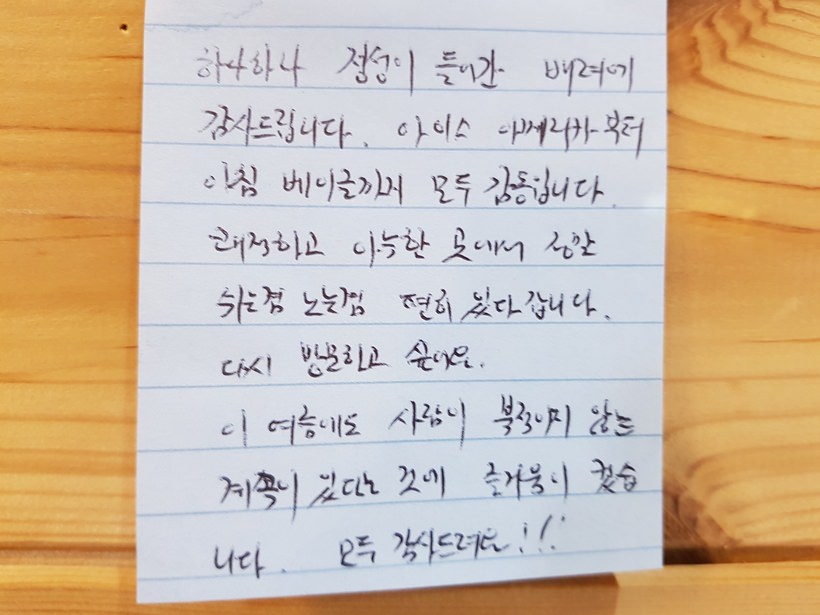 하나하나 정성이 들어간 배려에
감사드립니다. 아이스 아메리카부터
아침 베이글까지 모두 감동입니다.
쾌적하고 아늑한 곳에서 정말
쉬는겸 노는겸 편히 있다 갑니다.
다시 방문하고 싶어요.
이 여름에도 사람이 북적이지 않는
계곡이 있다는 것에 즐거움이 컸습
니다. 모두 감사드려요!!!